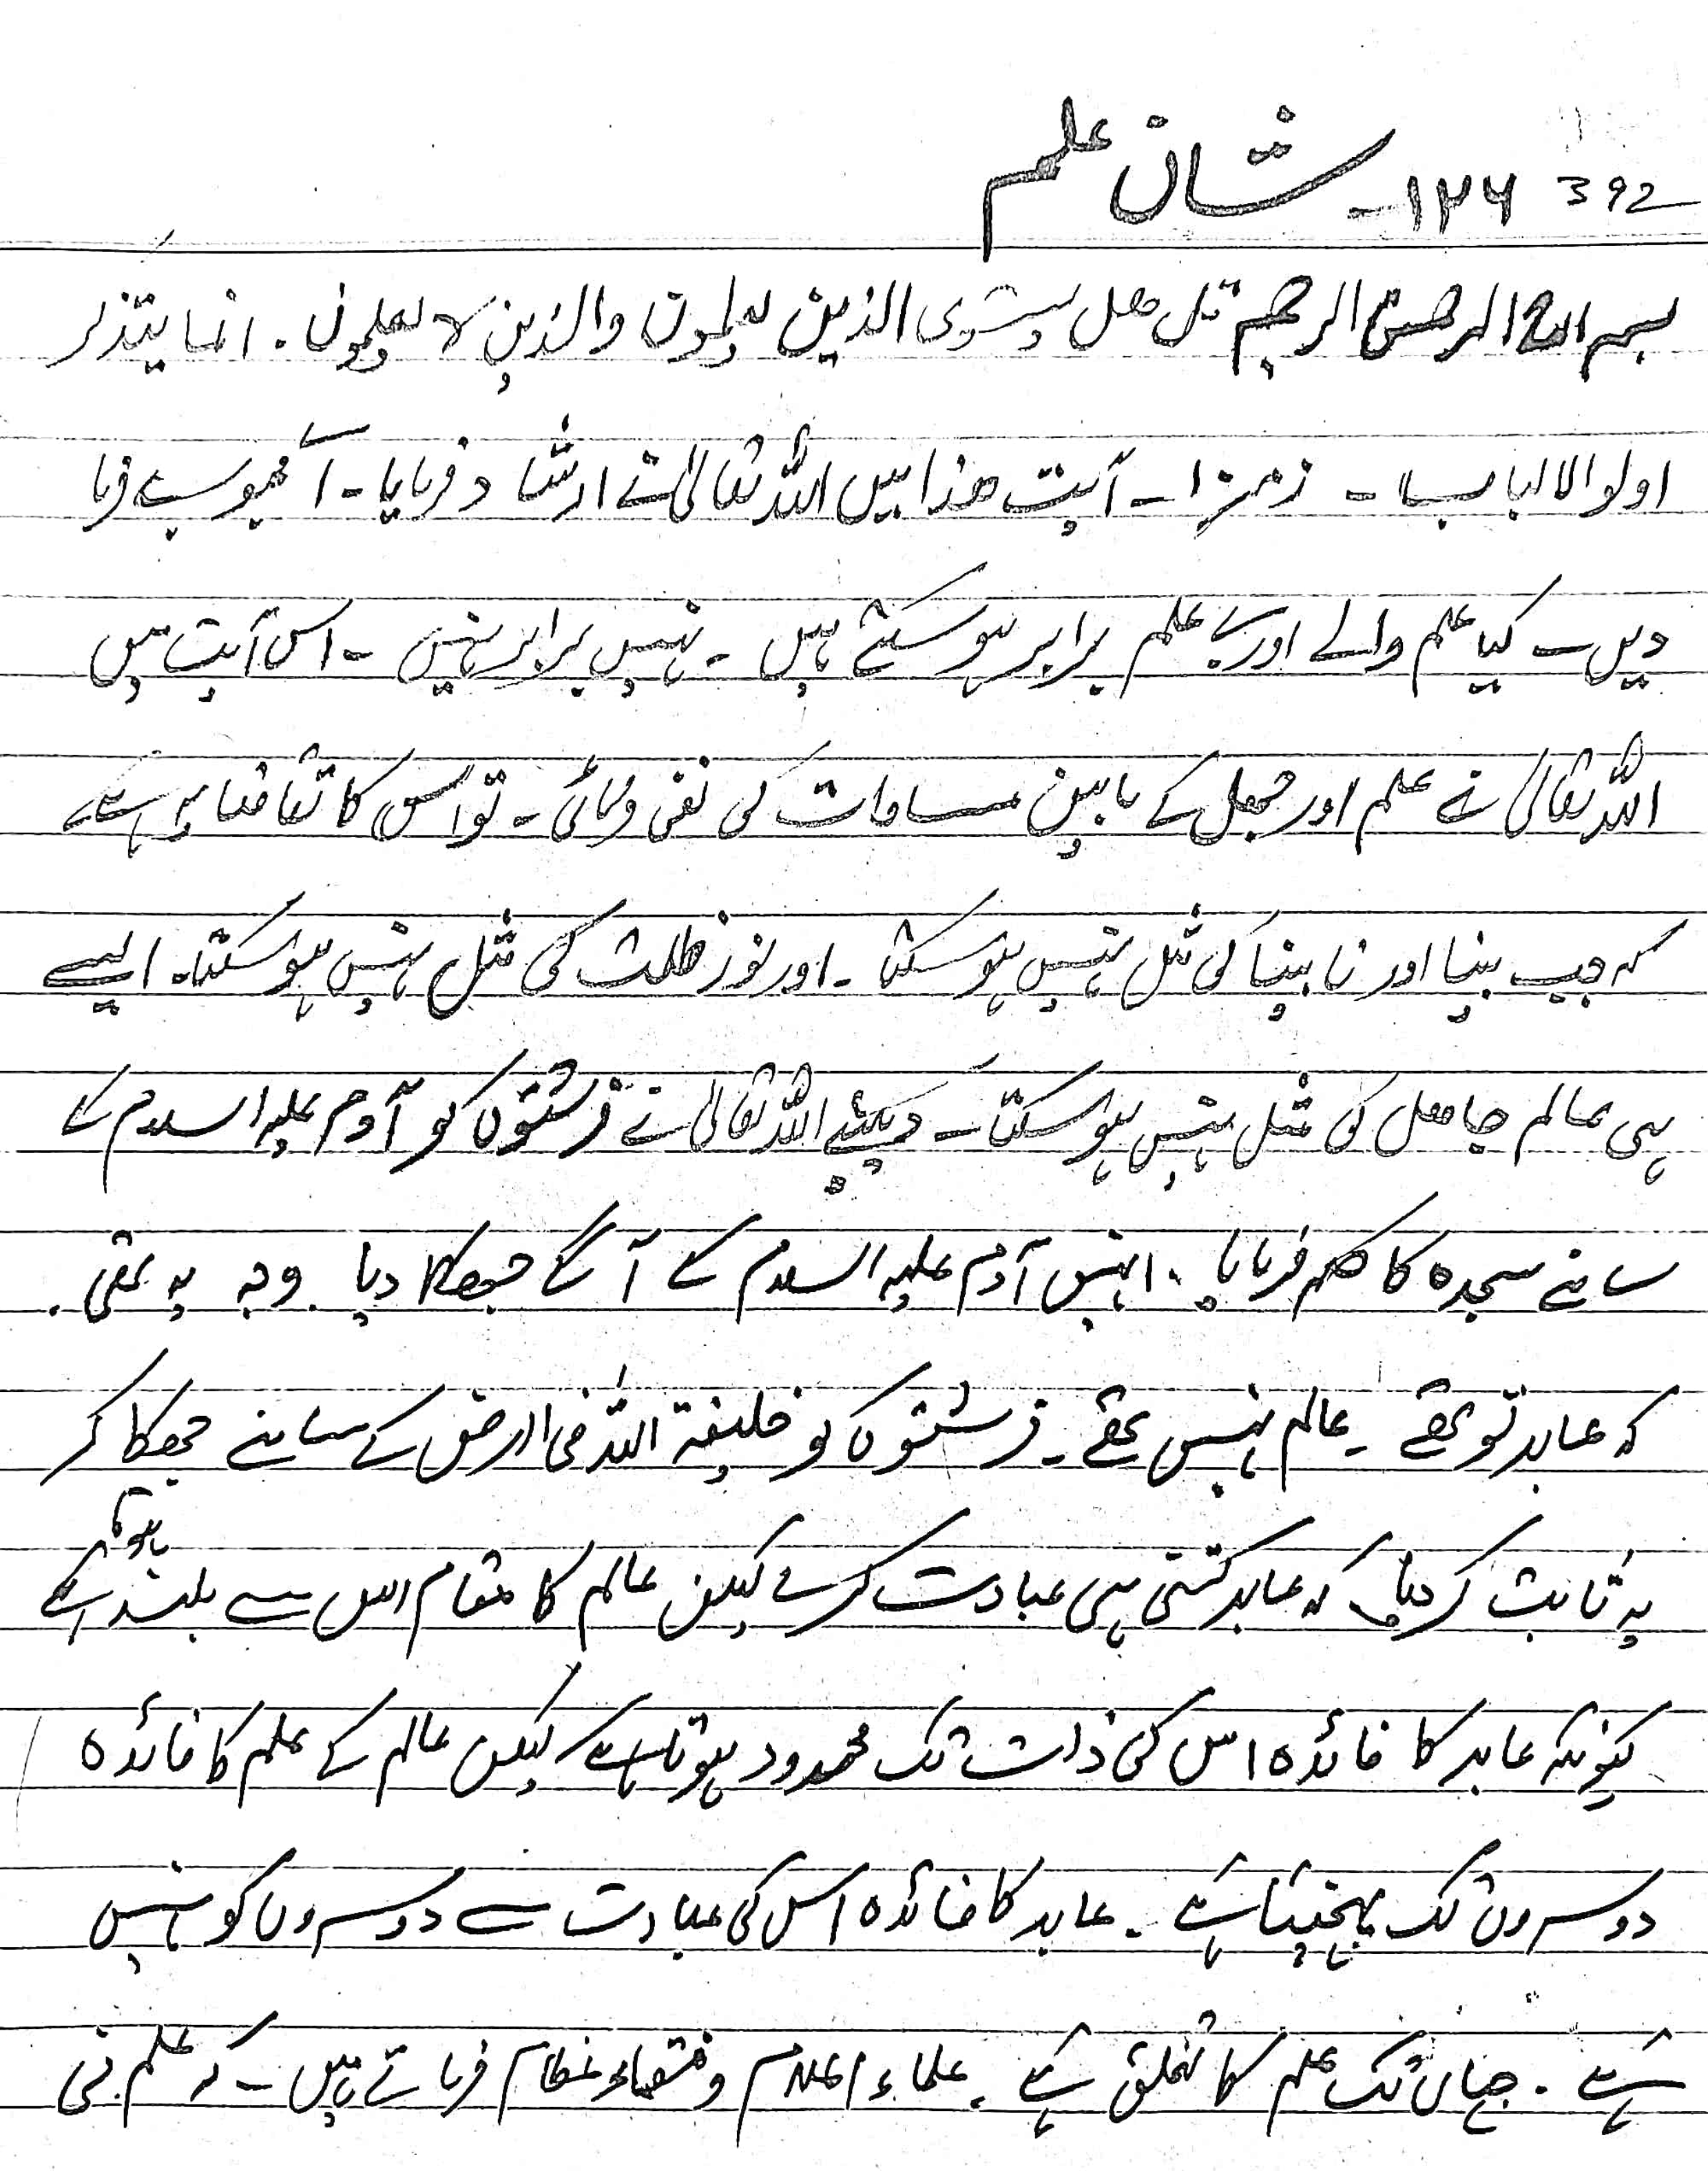 392 ۱۲۶۔ شان علم
بسم اللہ الرحمن الرحیم قل ھل یستوی الذین یعلمون والذین لا یعلمون . انما یتذکر
اولوالالباب ۔ زمر۔ آیت ھذا میں اللہ تعالیٰ نے ارشاد فرمایا ۔ آ محبوب فرما
دیں ۔ کیا علم والے اور بے علم برابر ہو سکتے ہیں ۔ نہیں برابر نہیں ۔ اس آیت میں
اللہ تعالیٰ نے علم اور جھل کے مابین مساوات کی نفی فرمائی ۔ تو اس کا تقاضا یہ ہے
کہ جیسے بینا اور نابینا کی مثل نہیں ہو سکتا ۔ اور نور ظلمت کی مثل نہیں ہو سکتا ۔ ایسے
ہی عالم جاھل کی مثل نہیں ہو سکتا ۔ دیکھئے اللہ تعالیٰ نے فرشتوں کو آدم علیہ السلام کے
سامنے سجدہ کا حکم فرمایا . انہیں آدم علیہ السلام کے آگے جھکا دیا . وجہ یہ تھی .
کہ عابد تو تھے ۔ عالم نہیں تھے ۔ فرشتوں کو خلیفۃ اللہ فی الارض کے سامنے جھکا کر
یہ ثابت کر دیا کہ عابد کتنی ہی عبادت کرے لیکن عالم کا مقام اس سے بلند ہوتا ہے
کیونکہ عابد کا فائدہ اس کی ذات تک محدود ہوتا ہے لیکن عالم کے علم کا فائدہ
دوسروں تک پہنچتا ہے ۔ عابد کا فائدہ اس کی عبادت سے دوسروں کو نہیں
ہے . جہاں تک علم کا تعلق ہے . علماء اعلام و فقھاء عظام فرماتے ہیں ۔ کہ علم نبی